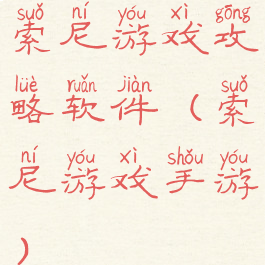 suǒ ní yóu xì gōng
索尼游戏攻
lüè ruǎn jiàn suǒ
略软件（索
ní yóu xì shǒu yóu
尼游戏手游
）